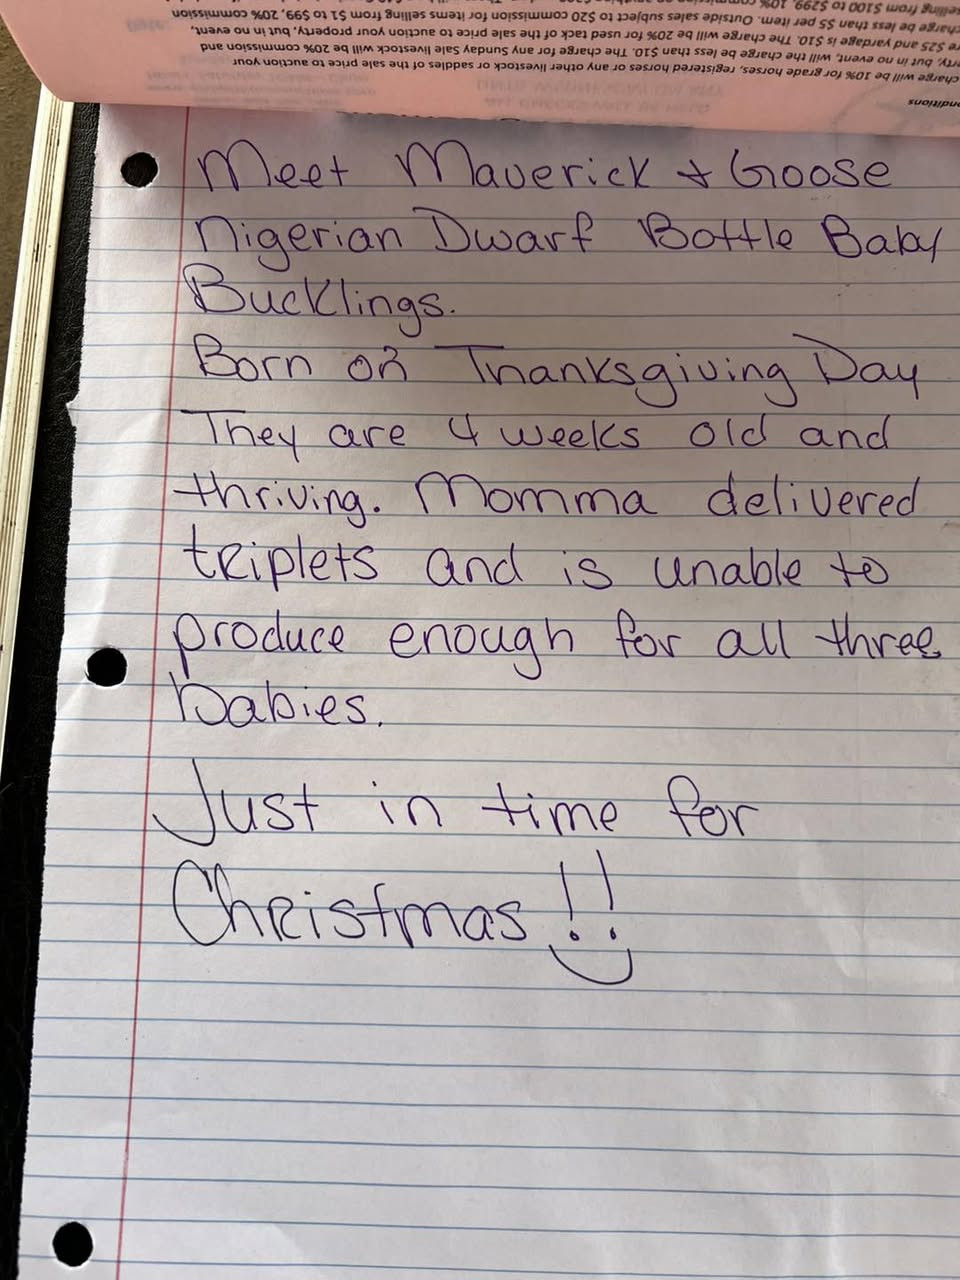 onditions
charge will be 10% for grade horses, registered horses or any other livestock or saddles of the sale price to auction your
rty, but in no event, will the charge be less than $10. The charge for any Sunday Sale livestock will be 20% commission and
re $25 and yardage is $10. The charge will be 20% for used tack of the sale price to auction your property, but in no event,
charge be less than $5 per item. Outside sales subject to $20 commission for items selling from $1 to $99, 20% commission
selling from $100 to $299, 10%
Meet Maverick & Goose
Nigerian Dwarf Bottle Baby
Bucklings.
Born on Thanksgiving Day
They are 4 weeks old and
thriving. Momma delivered
triplets and is unable to
produce enough for all three
babies.
Just in time for
Christmas!!